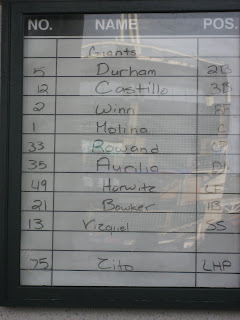 NO. NAME POS.
Giants
5 Durham 2B
12 Castillo 3B
2 Winn RF
1 Molina C
33 Rowand CF
35 Aurilia DH
49 Horwitz LF
21 Bowker 1B
13 Vizquel SS
75 Zito LHP